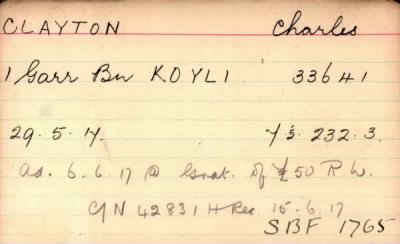 CLAYTON Charles
1 Garr Bn KOYLI 33641
29.5.17. 7/5. 232. 3.
Ad. 6.6.17 @ Grat. of £50 R.W.
C/N 42831 H Rec 15.6.17
SBF 1765